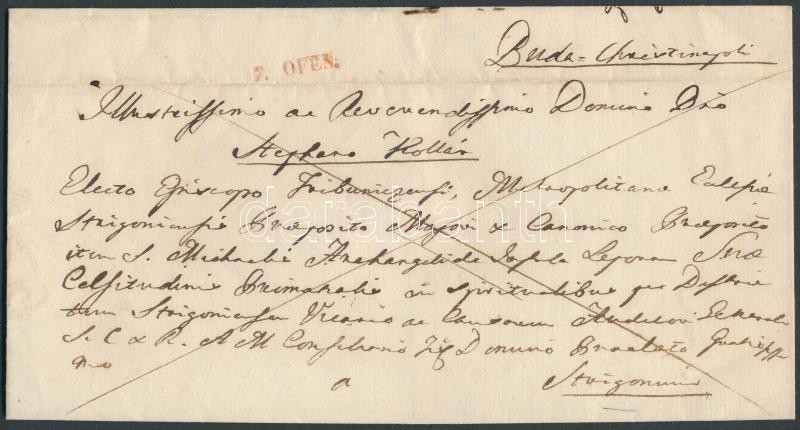 Buda-Christinopoli
v. OFEN.
Illustrissimo ac Reverendissimo Domino Dno
Stephano Kollár
Electo Episcopo Tribunicensi, Metropolitanae Ecclesiae
Strigoniensis Praeposito Majori & Canonico Praeposito
item S. Michaelis Archangeli de Insula Leporum Suae
Celsitudinis Primatialis in spiritualibus per Districtum Strigoniensem Vicario ac Causarum Auditori Generali
S. C. & R. A. M. Consiliario Domino Praelato Gratiosissimo
a
Strigonium
darabanth